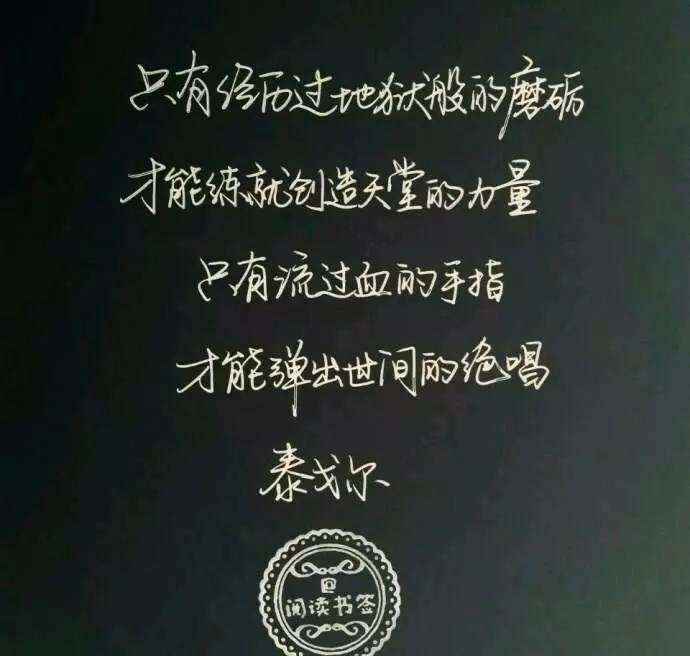 只有经历过地狱般的磨砺
才能练就创造天堂的力量
只有流过血的手指
才能弹出世间的绝唱
泰戈尔
@
阅读书签